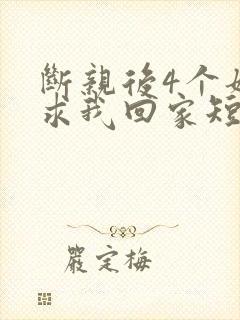 斷親後4个
求我回家短
嚴定梅